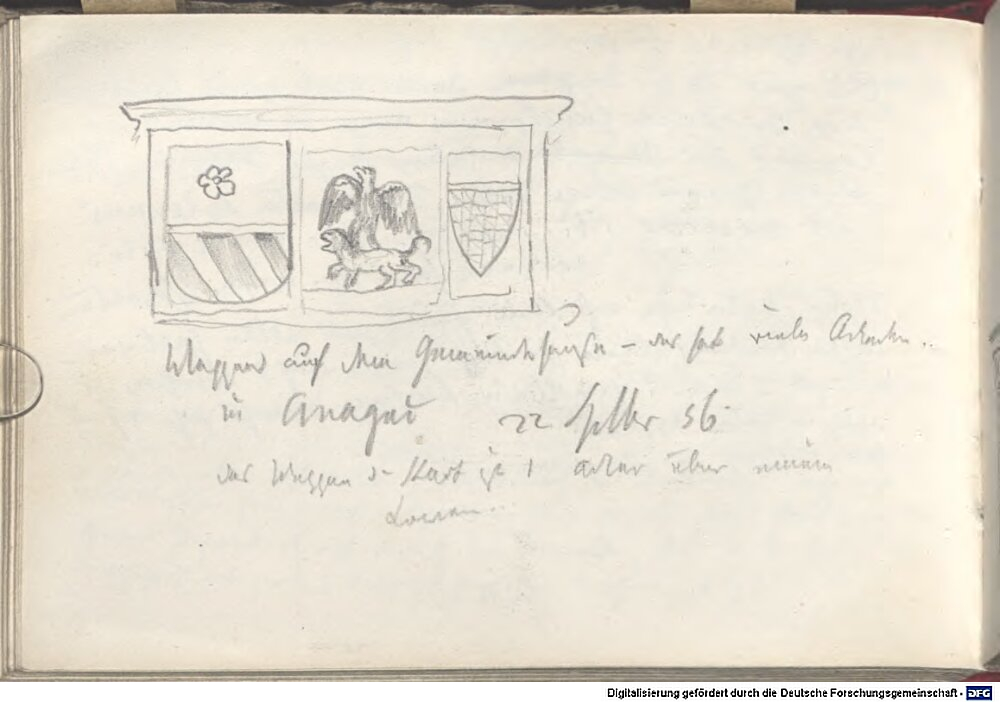 Wappen auf dem Gemeindehause – der hat viele
in Anagni 22 Septber 56
das Wappen d. Stadt ist 1 Adler über einem
Loewen..
Digitalisierung gefördert durch die Deutsche Forschungsgemeinschaft - DFG